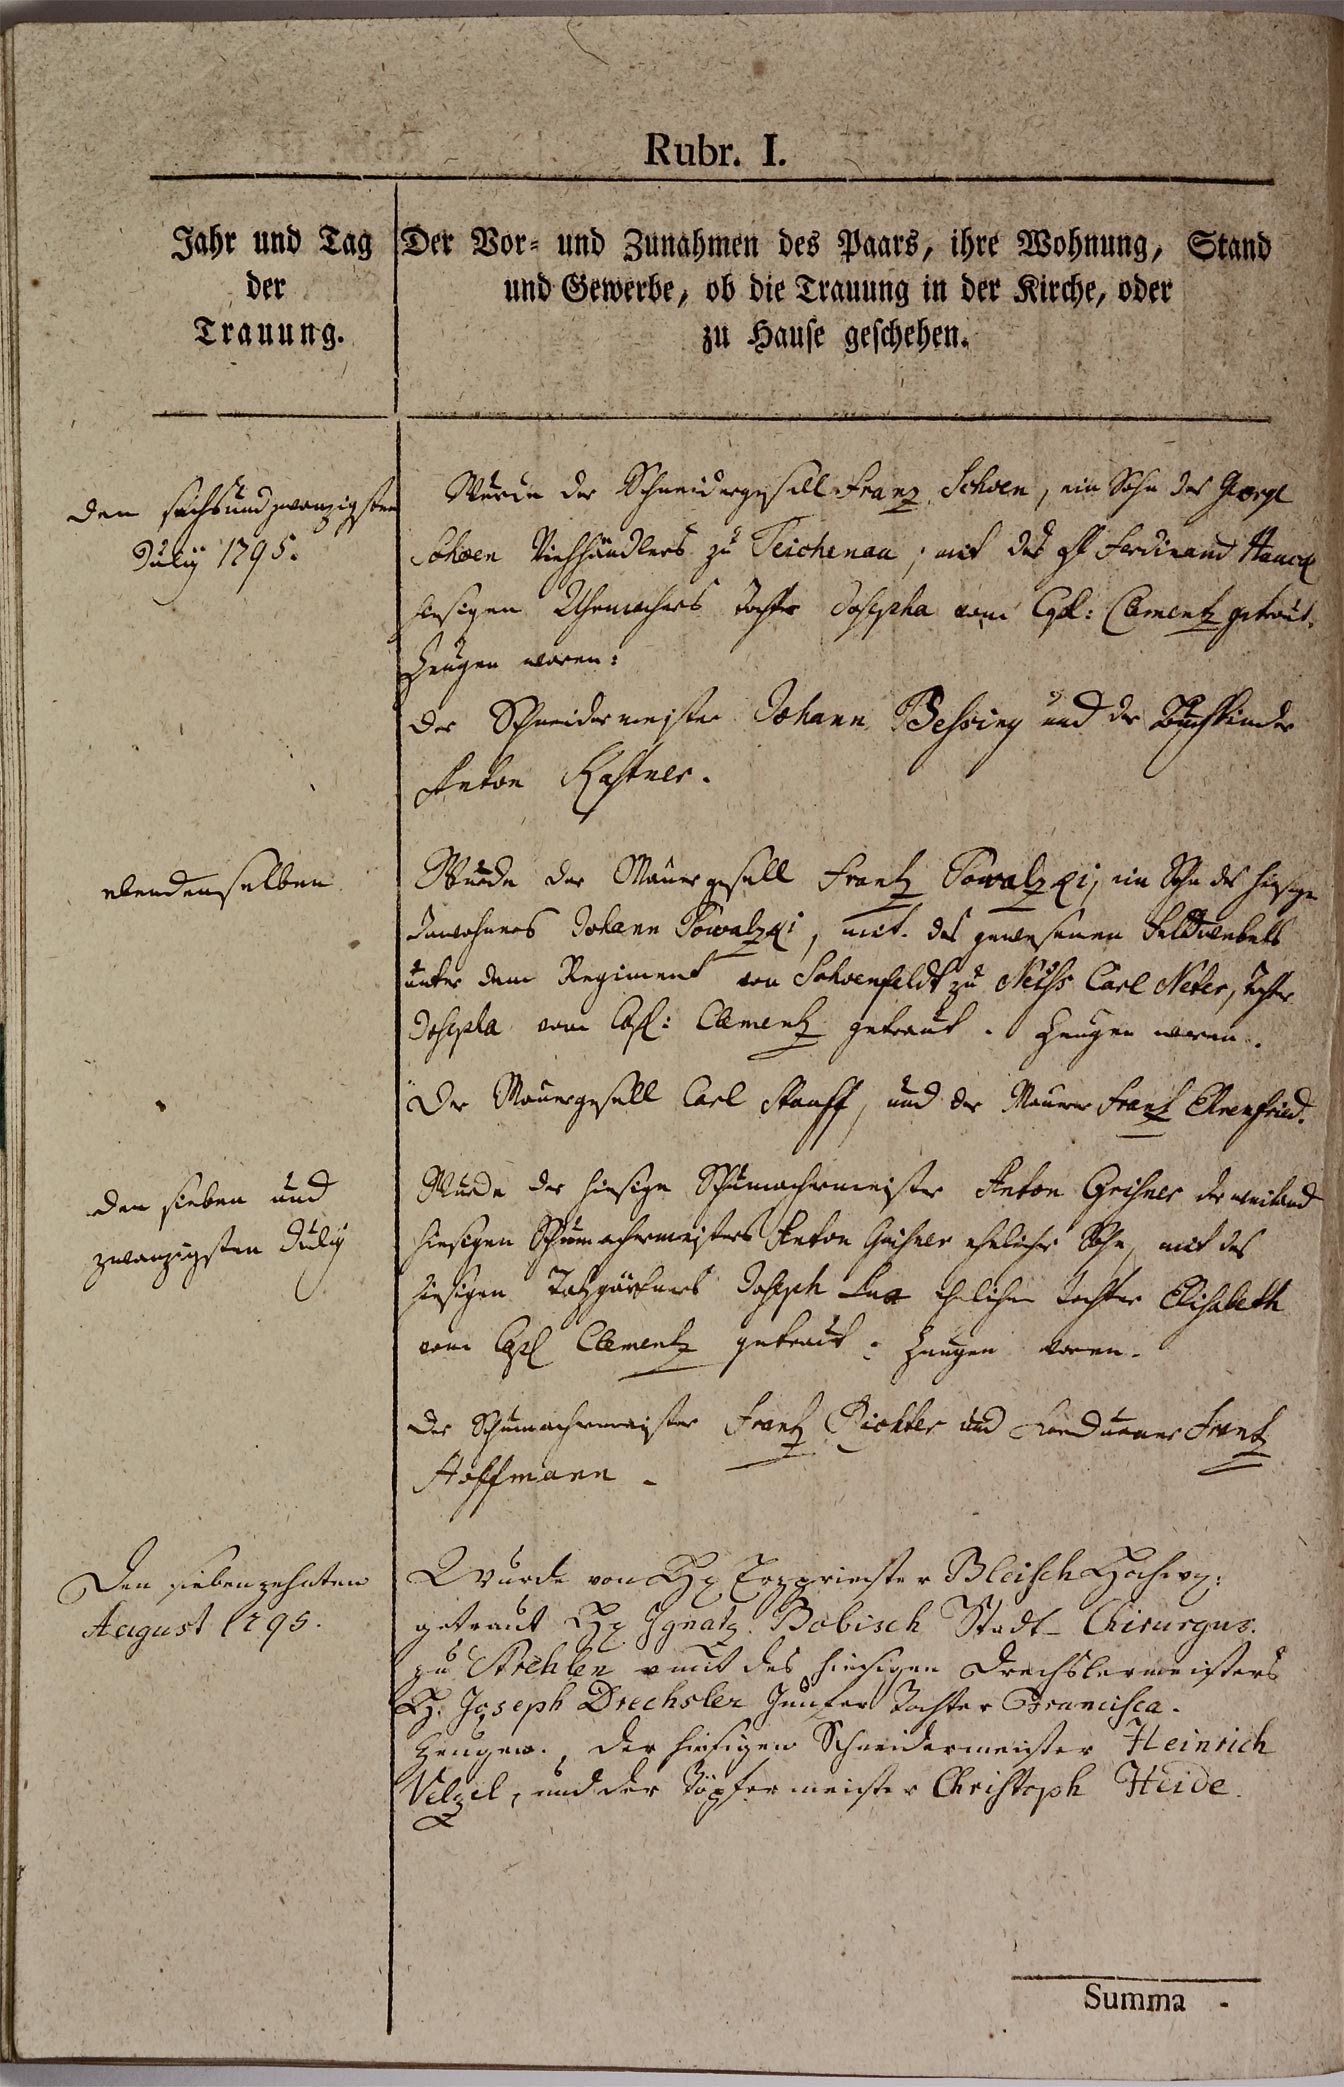 Rubr. I.
Jahr und Tag
der
Trauung.
Der Vor- und Zunahmen des Paars, ihre Wohnung, Stand
und Gewerbe, ob die Trauung in der Kirche, oder
zu Hause geschehen.
den sechsundzwanzigsten
Julij 1795.
Wurde der Schneidergesell Franz Schoen, ein Sohn des George
Schoen Viehhändlers zu Teichenau, mit des H Ferdinand Hauck
hiesigen Uhrmachers Tochter Josepha vom Cpl: Clementz getraut.
Zeugen waren:
der Schneidermeister Johann Bessing und der Buchbinder
Anton Kastner.
ebendenselben
Wurde der Mauergesell Frantz Powalzki, ein Sohn des hiesigen
Inwohners Johann Powalzki, mit des gewesenen Feldwebels
unter dem Regiment von Schoenfeldt zu Neiss Carl Neter, Tochter
Josepha vom Cpl: Clementz getraut. Zeugen waren.
Der Mauergesell Carl Stauff, und der Maurer Frantz Ehrenfried.
den sieben und
zwanzigsten Julij
Wurde der hiesige Schumachermeister Anton Geisner der weiland
hiesigen Schumachermeisters Anton Geisner ehelicher Sohn, mit des
hiesigen Joseph ehelichen Tochter Elisabeth
vom Cpl Clementz getraut: Zeugen waren.
der Schumachermeister Frantz Richter und Frantz
Hoffmann.
Den siebenzehnten
August 1795.
Wurde von H Erzpriester Bleisch Hochw:
getraut H Ignatz Bobisch Stadt-Chirurgus.
zu Strehlen mit des hiesigen Drechslermeisters
H. Joseph Drechsler Junfer Tochter Francisca.
Zeugen., der hiesigen Schneidermeister Heinrich
Velzel, und der Töpfermeister Christoph Heide.
Summa -